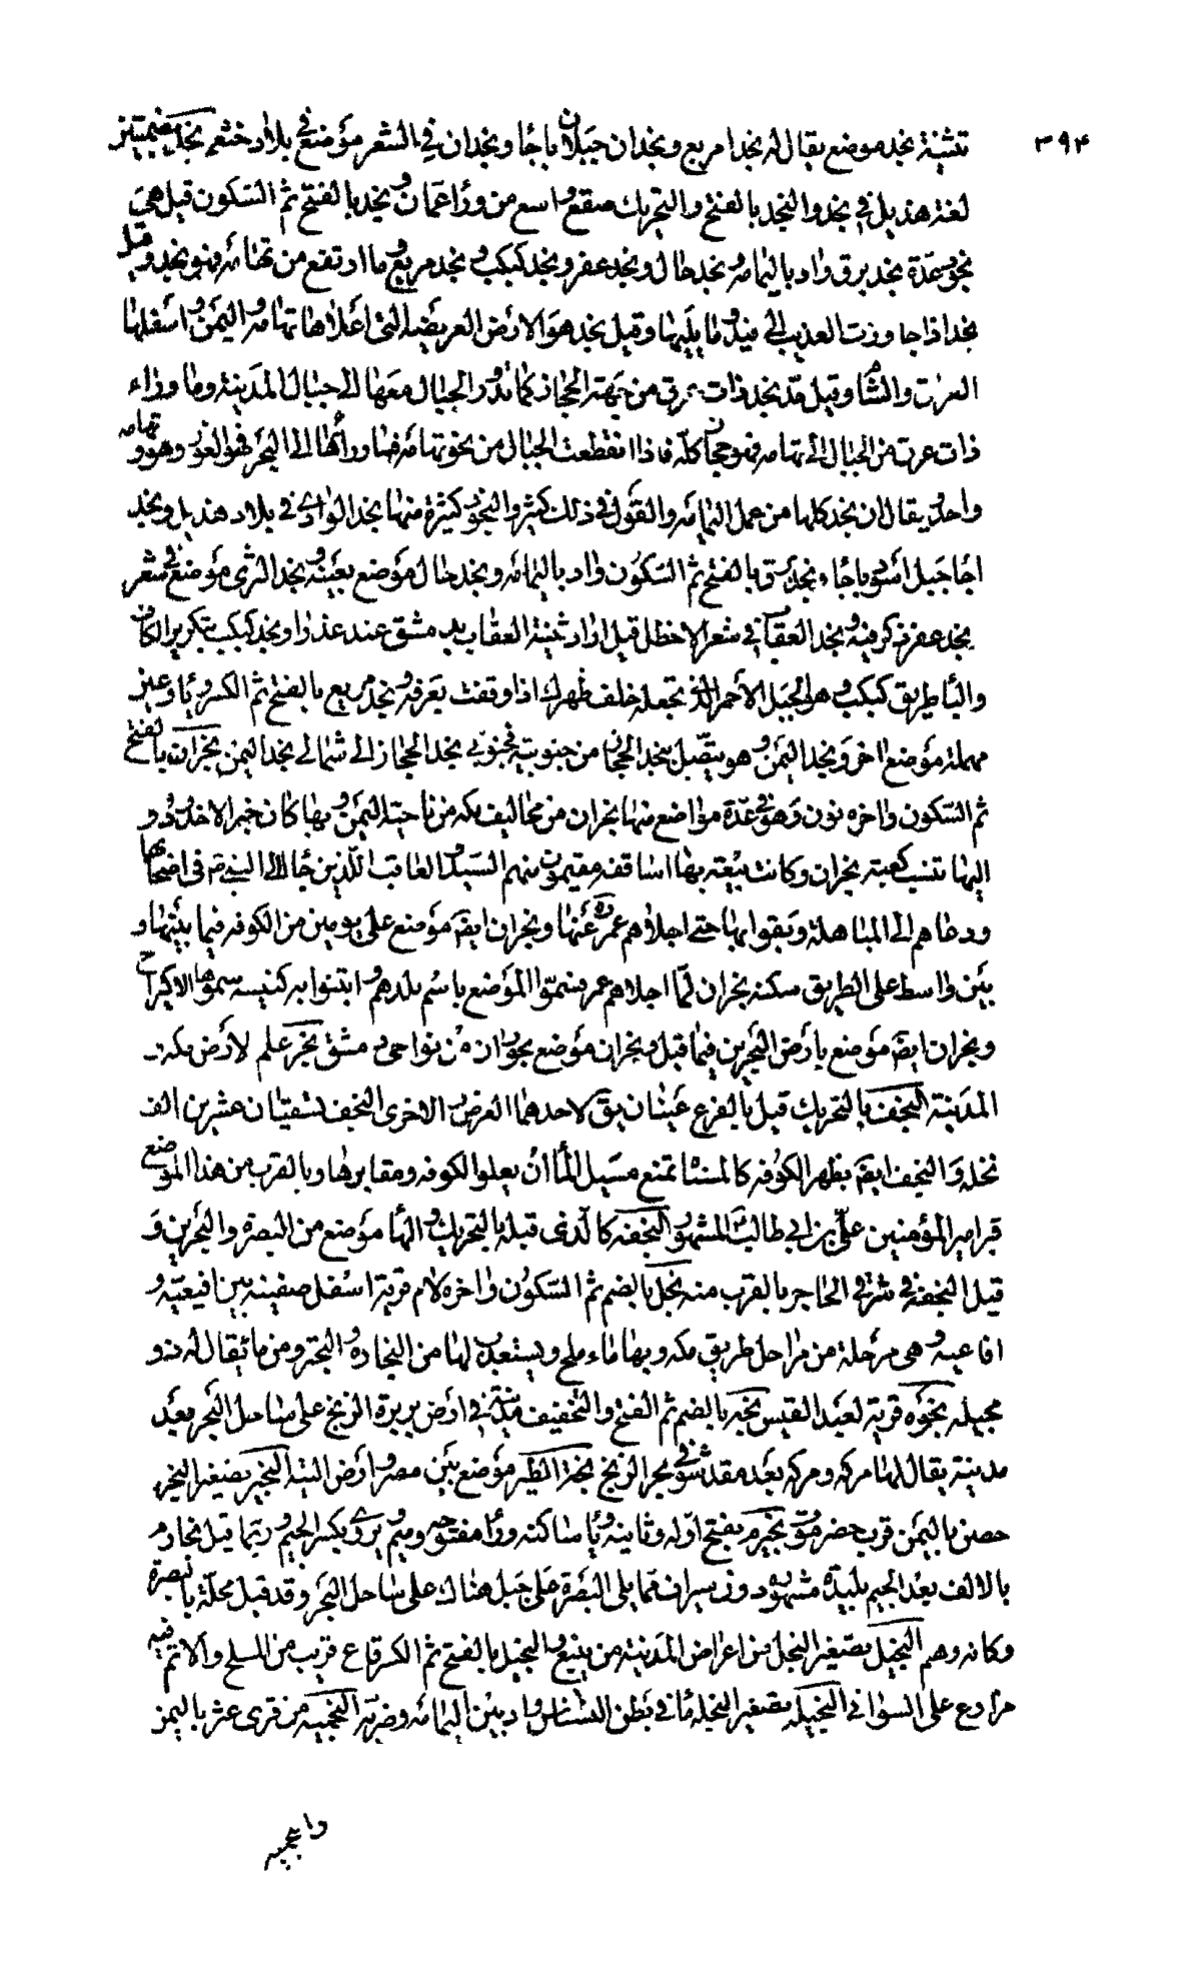 ٣٩۴
تثنية نجد موضع يقال له نجدا مريع ونجدان جبلان باجا ونجدان في الشعر موضع في بلاد خثعم نجد بضمتين
لغة هذيل في نجد والنجد بالفتح والتحريك صقع واسع من وراء عمان ونجد بالفتح ثم السكون قيل هي
نجود عدة نجد برق واد باليمامه ونجد خال ونجد عفر ونجد كبكب ونجد مريع وما ارتفع من تهامه فهو نجد وقيل
نجد اذا جاوزت العذيب الى فيد وما يليها وقيل نجد هو الارض العريضه التي اعلاها تهامه واليمن واسفلها
العراق والشام وقيل حد نجد ذات عرق من جهة الحجاز كما تدور الجبال معها الى جبال المدينة وما وراء
ذات عرق من الجبال الى تهامه فهو حجاز كله فاذا انقطعت الجبال من نحو تهامه فما ورائها الى البحر فهو الغور وهو وتهامه
واحد ويقال ان نجد كلها من عمل اليمامه والقول في ذلك كثير والنجود كثيرة منها نجد الوادى في بلاد هذيل ونجد
اجا جبل اسود باجاء نجد برق بالفتح ثم السكون واد باليمامه ونجد خال موضع بعينه ونجد الثرى موضع في شعر
نجد عفر ذكر فيه ونجد العقاب في شعر الاخطل قيل اراد ثنية العقاب بدمشق عند عذرا ونجد كبكب بتكرير الكاف
والبا طريق كبكب وهو الجبل الاحمر الذي تجعله خلف ظهرك اذا وقفت بعرفه ونجد مريع بالفتح ثم الكسر وياء وعين
مهملة موضع اخر ونجد اليمن وهو يتصل بنجد الحجاز من جنوبيه فجنوبي نجد الحجاز الى شمالي نجد اليمن نجران بالفتح
ثم السكون واخره نون وهو في عدة مواضع منها نجران من مخاليف مكه من ناحية اليمن وبها كان خبر الاخدود و
اليها تنسب كعبة نجران وكانت بيعة بها اساقفه مقيمون منهم السيد والعاقب اللذين جاا الى النبي ص في اصحابها
ودعاهم الى المباهلة وبقوا بها حتى اجلاهم عمر ره عنها ونجران ايضا موضع على يومين من الكوفه فيما بينها و
بين واسط على الطريق سكنه نجران لما اجلاهم عمر فسموا الموضع باسم بلدهم وابتنوا به كنيسه سموها الاكيراح
ونجران ايضا موضع بارض البحرين فيما قيل ونجران موضع بحوران من نواحى دمشق نجر علم لارض مكه و
المدينة النجف بالتحريك قيل بالفرع عينان يق لاحدهما الغرض والاخرى النجف تسقيان عشرين الف
نخله والنجف ايضا بظهر الكوفه كالمسناة تمنع مسيل الماء ان يعلو الكوفه ومقابرها وبالقرب من هذا الموضع
قبر امير المؤمنين علي بن ابي طالب المشهور النجفه كالذى قبله بالتحريك والهاء موضع من البصره والبحرين و
قيل النجفة في شرقي الحاجر بالقرب منه نجل بالضم ثم السكون واخره لام قرية اسفل صفينه بين افيعيه و
افاعيه وهى مرحلة من مراحل طريق مكه وبها ماء ملح ويستعذب لها من النجاره والنجير ومن ماء يقال له ذو
محبله نجوه قرية لعبد القيس نجه بالضم ثم الفتح والتخفيف مدينة في ارض بربرة الزنج على ساحل البحر بعد
مدينة يقال لها مركه ومركه بعد مقدشو في بحر الزنج نجة الطير موضع بين مصر وارض التيه النجير تصغير النجر
حصن باليمن قرب حضرموت نجيرم بفتح اوله وثانيه وياء ساكنه وراء مفتوحه وميم ويروى بكسر الجيم وربما قيل نجارم
بالالف بعد الجيم بليدة مشهورة دون سيراف مما يلى البصرة على جبل هناك على ساحل البحر وقد قيل محلة بالبصرة
وكانه وهم النجيل تصغير النجل من اعراض المدينة من ينبع والنجيل بالفتح ثم الكسر قاع قريب من المسلح والاتم فيه
مزارع على السواني النجيله تصغير النجلة ماء في بطن النشاش واد بين اليمامه وضريه النجميه من قرى عثر باليمن